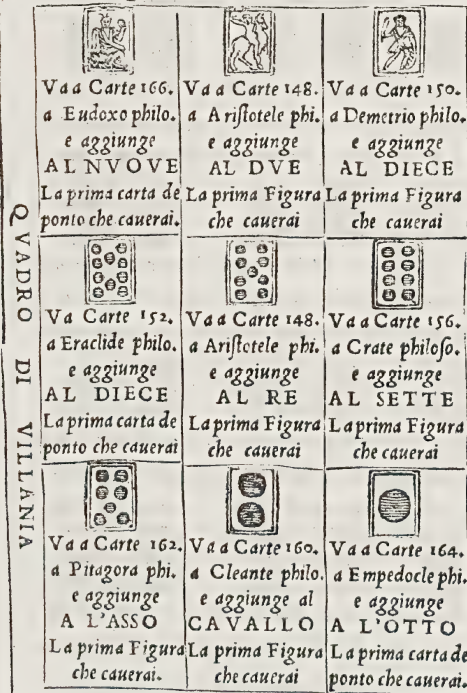 QVADRO DI VILLANIA
Va a Carte 166.
a Eudoxo philo.
e aggiunge
AL NVOVE
La prima carta de
ponto che cauerai.
Va a Carte 148.
a Aristotele phi.
e aggiunge
AL DVE
La prima Figura
che cauerai
Va a Carte 150.
a Demetrio philo.
e aggiunge
AL DIECE
La prima Figura
che cauerai
Va a Carte 152.
a Eraclide philo.
e aggiunge
AL DIECE
La prima carta de
ponto che cauerai
Va a Carte 148.
a Aristotele phi.
e aggiunge
AL RE
La prima Figura
che cauerai
Va a Carte 156.
a Crate philoso.
e aggiunge
AL SETTE
La prima Figura
che cauerai
Va a Carte 162.
a Pitagora phi.
e aggiunge
A L'ASSO
La prima Figura
che cauerai.
Va a Carte 160.
a Cleante philo.
e aggiunge al
CAVALLO
La prima Figura
che cauerai
Va a Carte 164.
a Empedocle phi.
e aggiunge
A L'OTTO
La prima carta de
ponto che cauerai.